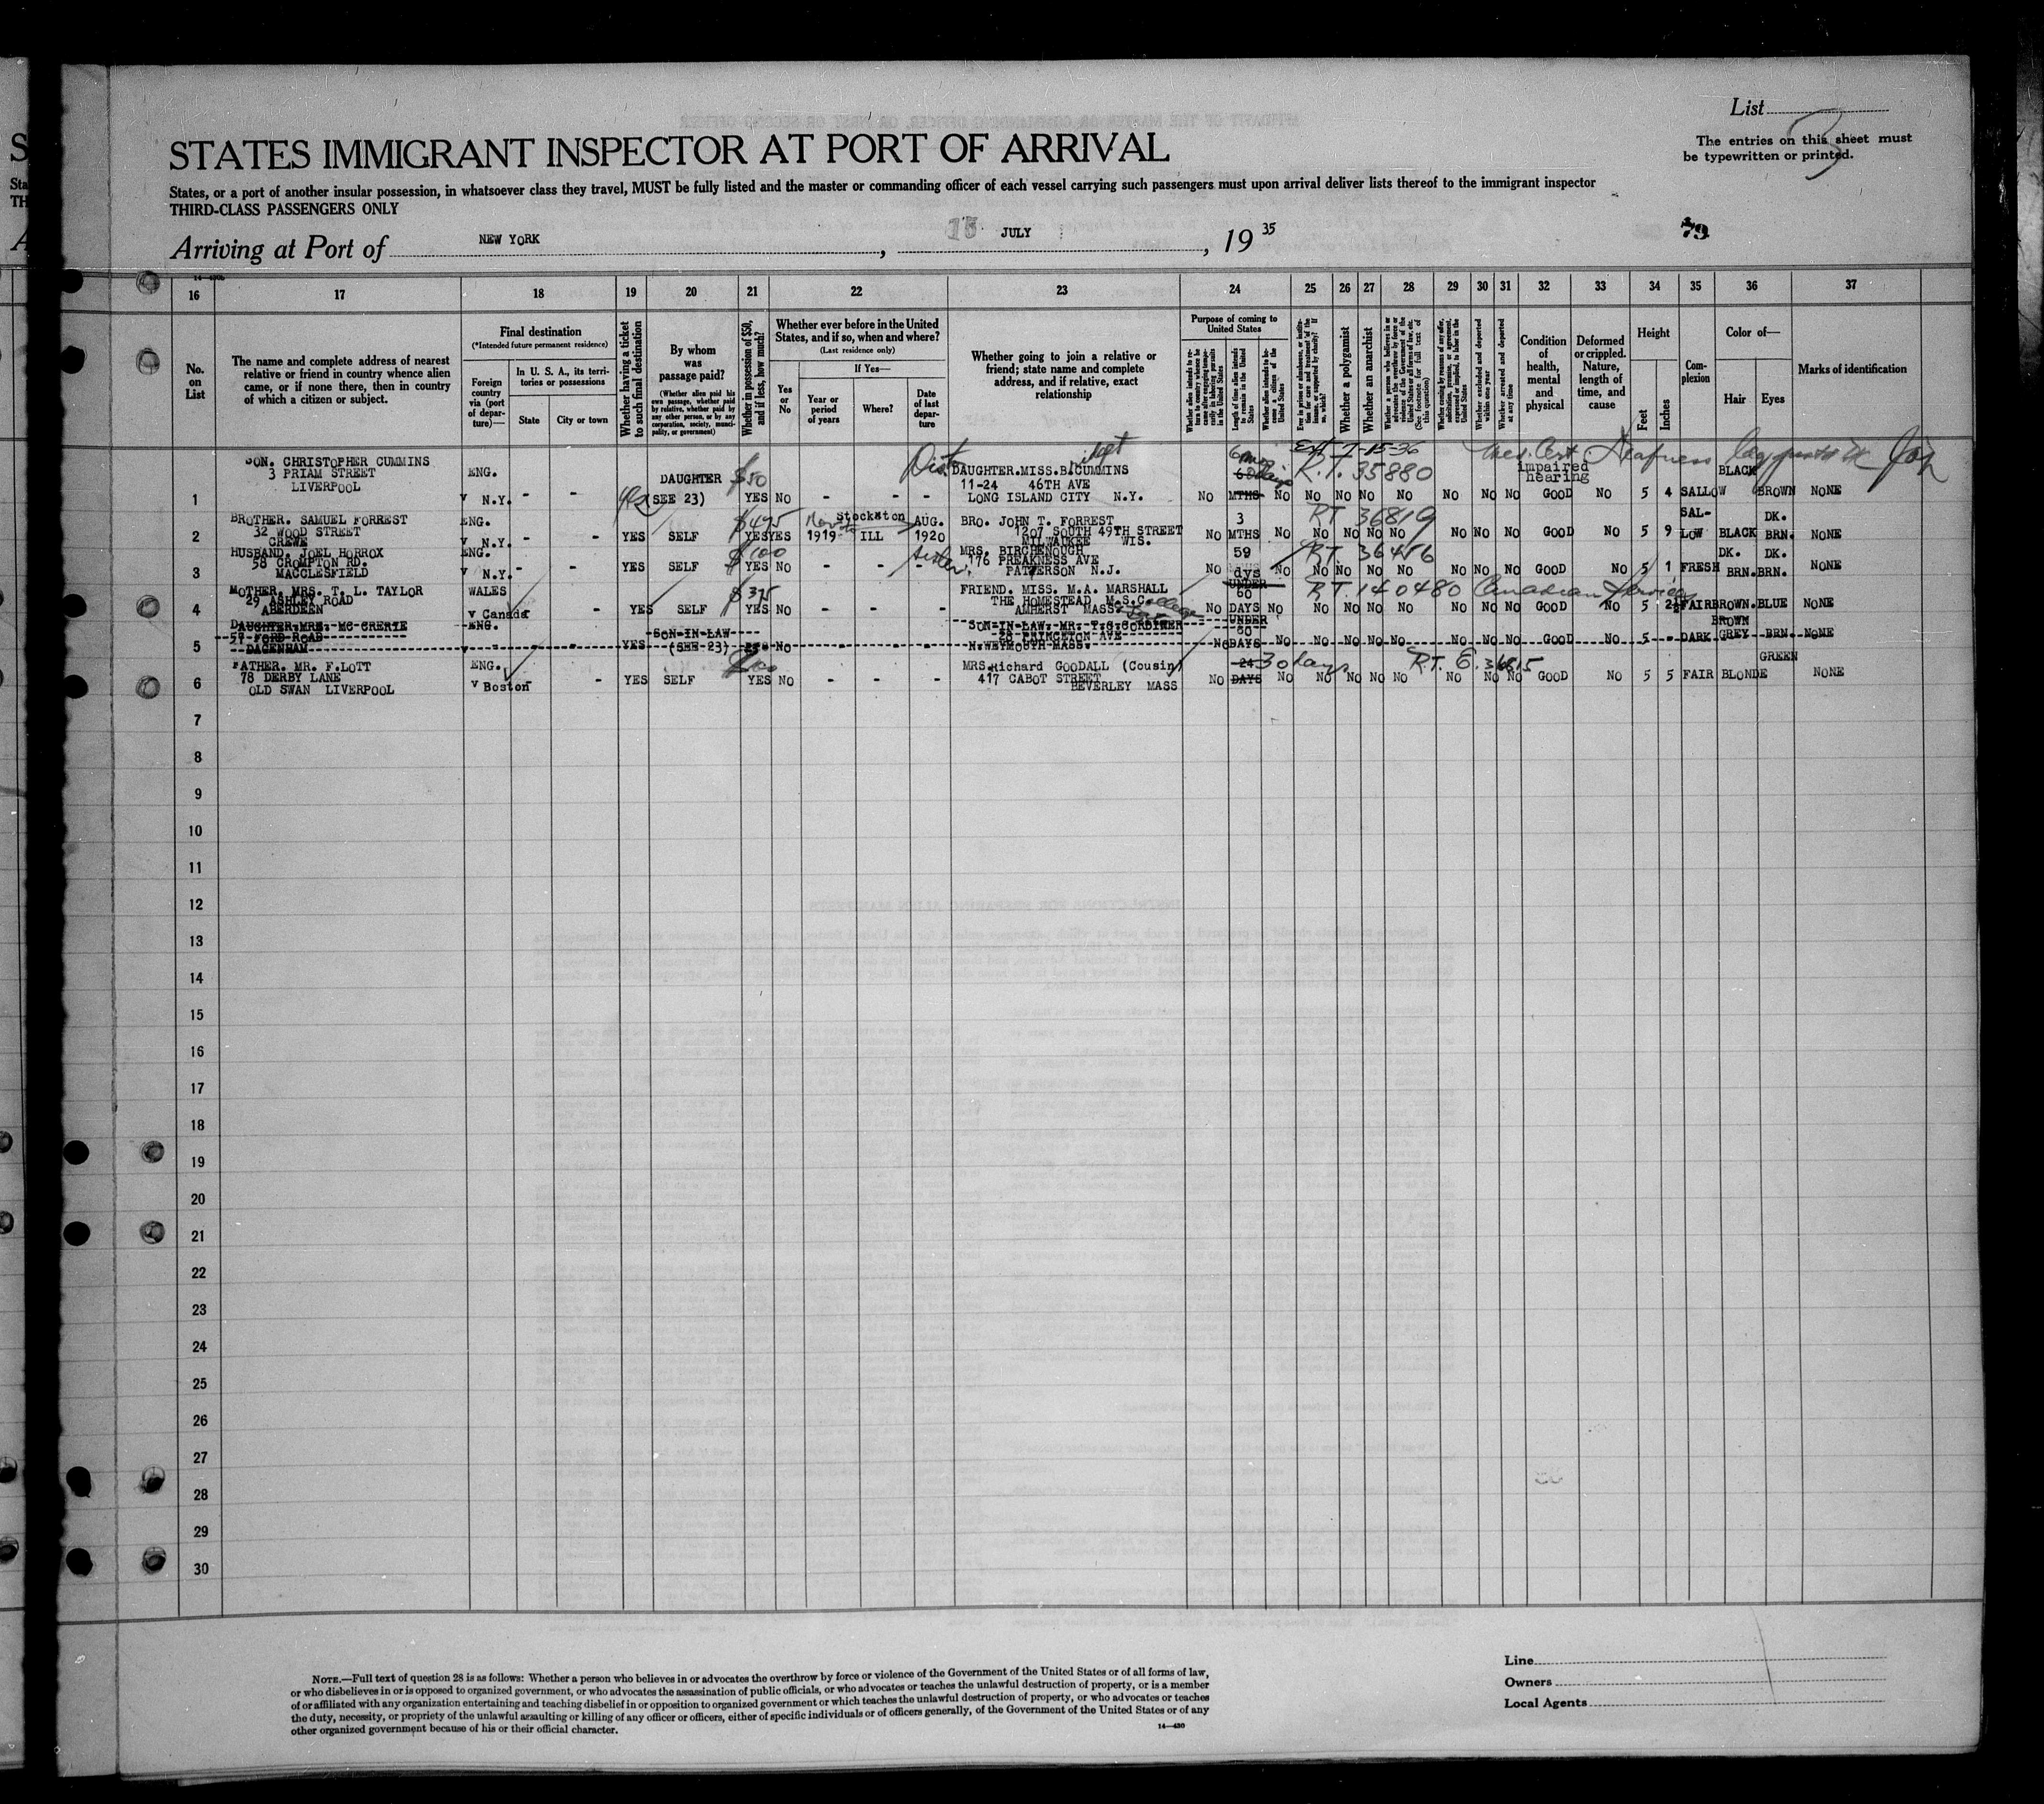 List 3
The entries on this sheet must
be typewritten or printed.
STATES IMMIGRANT INSPECTOR AT PORT OF ARRIVAL
States, or a port of another insular possession, in whatsoever class they travel, MUST be fully listed and the master or commanding officer of each vessel carrying such passengers must upon arrival deliver lists thereof to the immigrant inspector
THIRD-CLASS PASSENGERS ONLY
79
Arriving at Port of NEW YORK, 15 JULY, 1935
16 17 18 19 20 21 22 23 24 25 26 27 28 29 30 31 32 33 34 35 36 37
No. on List
The name and complete address of nearest
relative or friend in country whence alien
came, or if none there, then in country
of which a citizen or subject.
Final destination
(*Intended future permanent residence)
Foreign country via (port of departure)—
In U. S. A., its territories or possessions
State
City or town
Whether having a ticket to such final destination
By whom was passage paid?
(Whether alien paid his own passage, whether paid by relative, whether paid by any other person, or by any corporation, society, municipality, or government)
Whether in possession of $50, and if less, how much?
Whether ever before in the United States, and if so, when and where?
(Last residence only)
Yes or No
If Yes—
Year or period of years
Where?
Date of last departure
Whether going to join a relative or
friend; state name and complete
address, and if relative, exact
relationship
Purpose of coming to United States
Length of time alien intends to remain in the United States
Whether alien intends to become a citizen of the United States
Whether a polygamist
Whether an anarchist
Whether excluded and deported within one year
Whether arrested and deported at any time
Condition of health, mental and physical
Deformed or crippled. Nature, length of time, and cause
Height
Feet
Inches
Complexion
Color of—
Hair
Eyes
Marks of identification
Ext 7-15-36 Med. Cert Deafness
SON. CHRISTOPHER CUMMINS ENG. DAUGHTER $50 DAUGHTER.MISS.B.CUMMINS R.T. 35880 impaired hearing BLACK
3 PRIAM STREET 11-24 46TH AVE
LIVERPOOL
1 v N.Y. - - (SEE 23) YES NO - - - LONG ISLAND CITY N.Y. NO MTHS NO NO NO NO NO NO NO NO GOOD NO 5 4 SALLOW BROWN NONE
BROTHER. SAMUEL FORREST ENG. $495 Stockston AUG. BRO. JOHN T. FORREST 3 RT 36819 SAL- DK.
32 WOOD STREET 1207 SOUTH 49TH STREET
2 CREWE v N.Y. - - YES SELF YES YES 1919- ILL 1920 MILWAUKEE WIS. NO MTHS NO NO NO NO NO NO NO NO GOOD NO 5 9 LOW BLACK BRN. NONE
HUSBAND. JOEL HORROX ENG. $100 MRS. BIRCHENOUGH 59 RT. 36416 DK. DK.
58 CROMPTON RD. 176 PREAKNESS AVE
3 MACCLESFIELD v N.Y. - - YES SELF YES NO - - - PATTERSON N.J. NO dys NO NO NO NO NO NO NO NO GOOD NO 5 1 FRESH BRN. BRN. NONE
MOTHER. MRS. T. L. TAYLOR WALES $375 FRIEND. MISS. M.A. MARSHALL UNDER 60 RT. 140480 Canadian
29 ASHLEY ROAD THE HOMESTEAD M.S.College
4 ABERDEEN v Canada - YES SELF YES NO - - - AMHERST MASS. NO DAYS NO NO NO NO NO NO NO NO GOOD NO 5 2½ FAIR BROWN. BLUE NONE
DAUGHTER.MRS. MC CRERIE ENG. SON-IN-LAW SON-IN-LAW. MR. T.G.CORDINER UNDER 60 BROWN
57 FORD ROAD 28 PRINCETON AVE
5 DAGENHAM v - - YES (SEE 23) NO - - - N.WEYMOUTH MASS. NO DAYS NO NO NO NO NO NO NO NO GOOD NO 5 - DARK GREY BRN NONE
FATHER. MR. F.LOTT ENG. $100 MRS. Richard GOODALL (Cousin) 24 30 days R.T. E. 36815 GREEN
78 DERBY LANE 417 CABOT STREET
6 OLD SWAN LIVERPOOL v Boston - - YES SELF YES NO - - - BEVERLEY MASS NO DAYS NO NO NO NO NO NO NO NO GOOD NO 5 5 FAIR BLONDE NONE
7
8
9
10
11
12
13
14
15
16
17
18
19
20
21
22
23
24
25
26
27
28
29
30
NOTE.—Full text of question 28 is as follows: Whether a person who believes in or advocates the overthrow by force or violence of the Government of the United States or of all forms of law,
or who disbelieves in or is opposed to organized government, or who advocates the assassination of public officials, or who advocates or teaches the unlawful destruction of property, or is a member
of or affiliated with any organization entertaining and teaching disbelief in or opposition to organized government or which teaches the unlawful destruction of property, or who advocates or teaches
the duty, necessity, or propriety of the unlawful assaulting or killing of any officer or officers, either of specific individuals or of officers generally, of the Government of the United States or of any
other organized government because of his or their official character.
14—430
Line
Owners
Local Agents